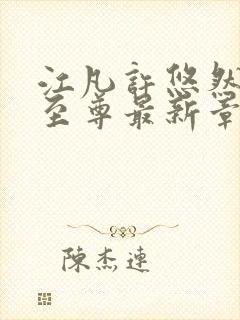 江凡許悠然
至尊最新章
陳杰連